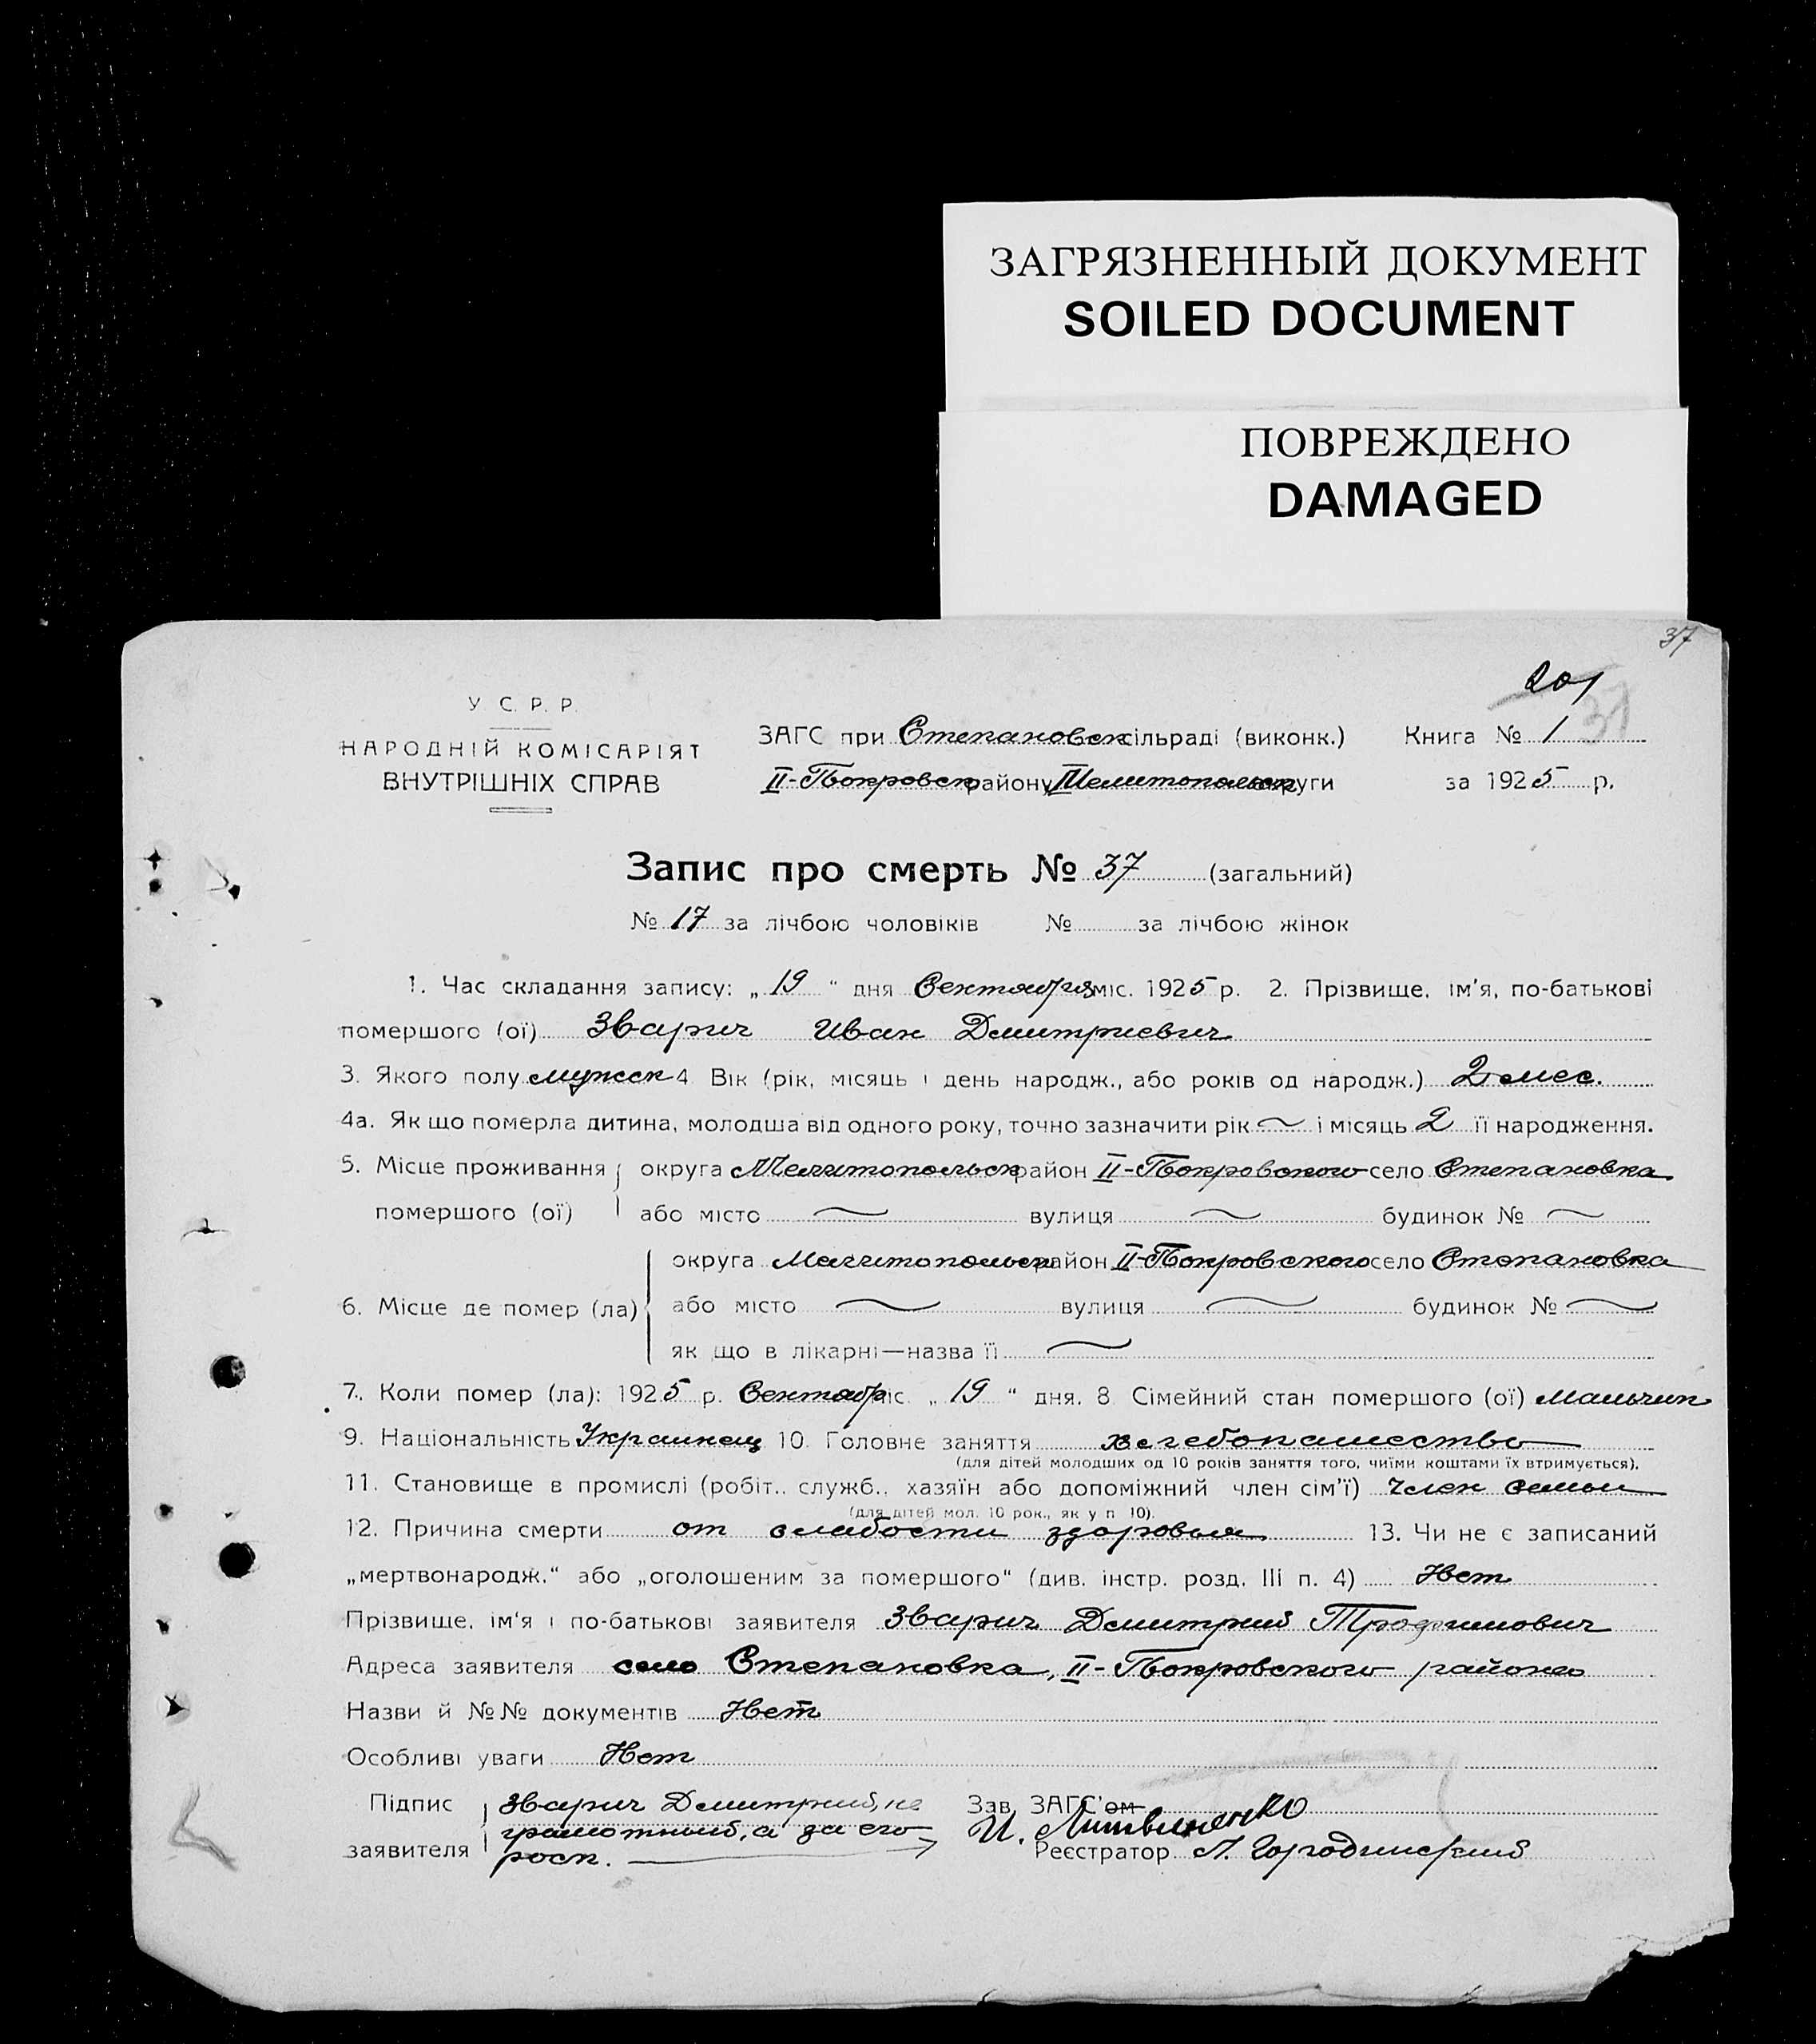 ЗАГРЯЗНЕННЫЙ ДОКУМЕНТ
SOILED DOCUMENT
ПОВРЕЖДЕНО
DAMAGED
37
201
31
У. С. Р. Р.
НАРОДНІЙ КОМІСАРІЯТ
ВНУТРІШНІХ СПРАВ
ЗАГС при Степановск сільраді (виконк.) Книга № 1
II-Покровск району Мелитопольск округи за 1925 р.
Запис про смерть № 37 (загальний)
№ 17 за лічбою чоловіків № за лічбою жінок
1. Час складання запису: „19“ дня Сентября міс. 1925 р. 2. Прізвище, ім'я, по-батькові
помершого (ої) Зварич Иван Дмитриевич
3. Якого полу мужск 4 Вік (рік, місяць і день народж., або років од народж.) 2 мес.
4а. Як що померла дитина, молодша від одного року, точно зазначити рік ~ і місяць 2 її народження.
5. Місце проживання округа Мелитопольск район II-Покровского село Степановка
помершого (ої) або місто ~ вулиця ~ будинок № ~
округа Мелитопольск район II-Покровского село Степановка
6. Місце де помер (ла) або місто ~ вулиця ~ будинок № ~
як що в лікарні—назва її ~
7. Коли помер (ла): 1925 р. Сентябр міс. „19“ дня. 8 Сімейний стан помершого (ої) мальчик
9. Національність Украинец 10. Головне заняття хлебопашество
(для дітей молодших од 10 років заняття того, чиїми коштами їх втримується).
11. Становище в промислі (робіт., служб., хазяїн або допоміжний член сім'ї) Член семьи
(для дітей мол. 10 рок., як у п 10).
12. Причина смерти от слабости здоровья 13. Чи не є записаний
„мертвонародж.“ або „оголошеним за помершого“ (див. інстр. розд. III п. 4) Нет
Прізвище, ім'я і по-батькові заявителя Зварич Дмитрий Трофимович
Адреса заявителя село Степановка, II-Покровского района
Назви й №№ документів Нет
Особливі уваги Нет
Підпис заявителя Зварич Дмитрий, не
грамотный, а за его
росп.
Зав. ЗАГС'ом И. Литвиненко
Реєстратор Л. Городинский